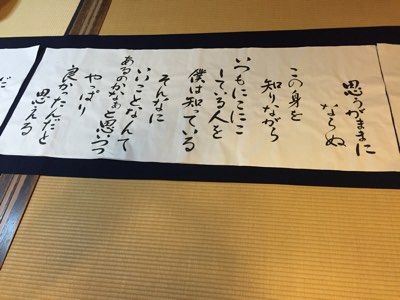 思うがままに
ならぬ
この身を
知りながら
いつもにこにこ
している人を
僕は知っている
そんなに
いいことなんて
あるのかなぁと思いつつ
やっぱり
良かったんだと
思える
だ